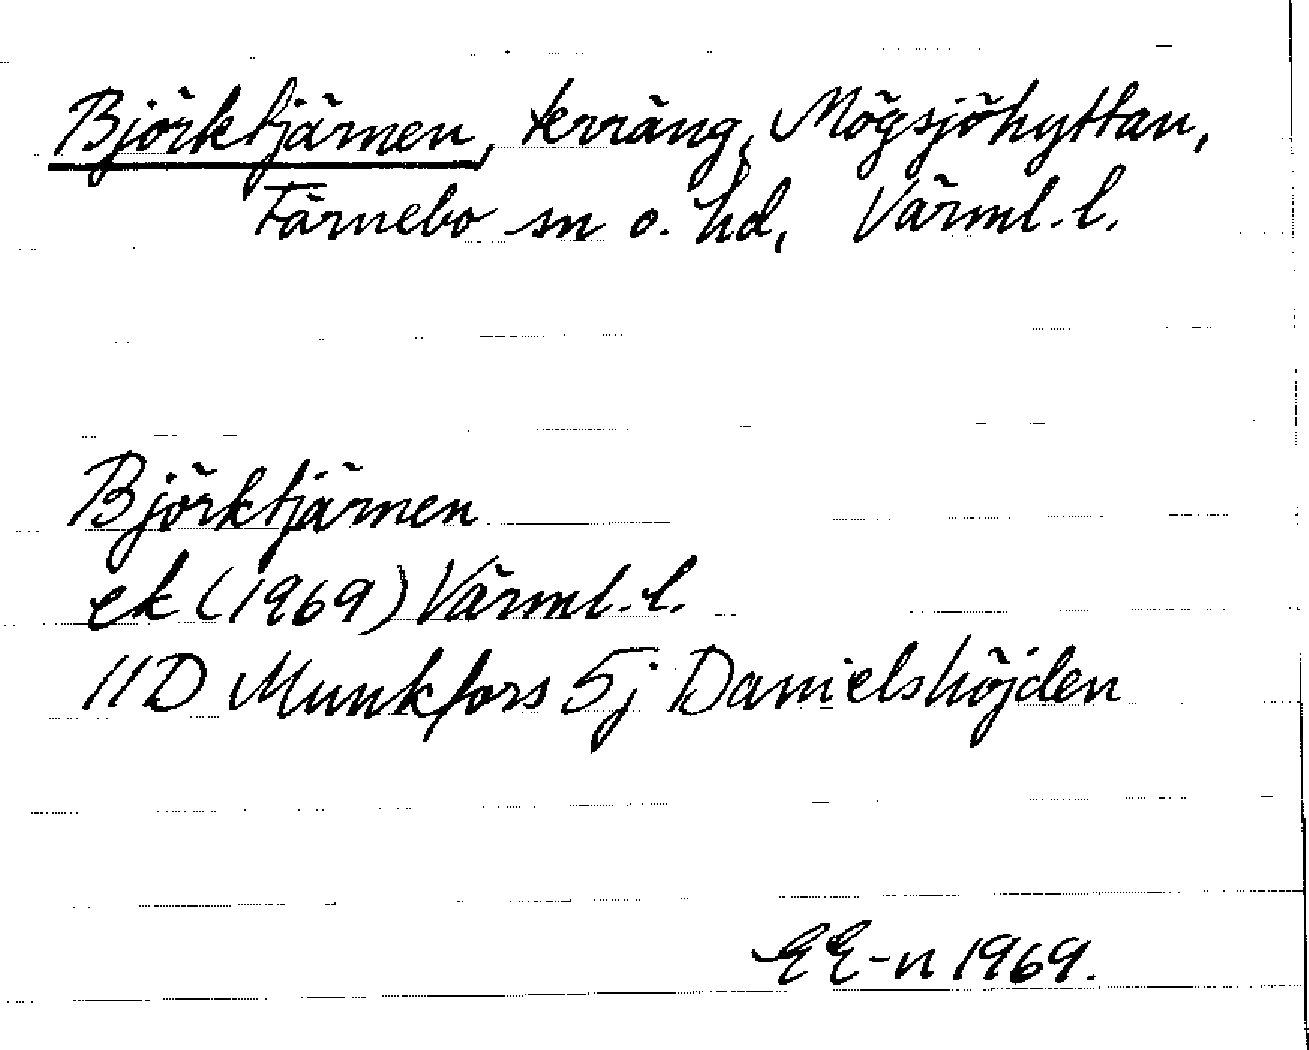 Björktjärnen, terräng, Mögsjöhyttan,
Färnebo sn o. hd, Värml. l.
Björktjärnen
ek (1969) Värml. l.
11D Munkfors 5j Danielshöjden
EE-n 1969.